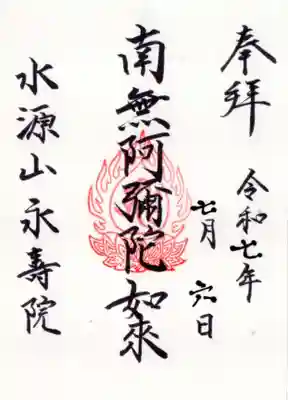 奉拜
令和七年
七月六日
南無阿彌陀如來
水源山永壽院